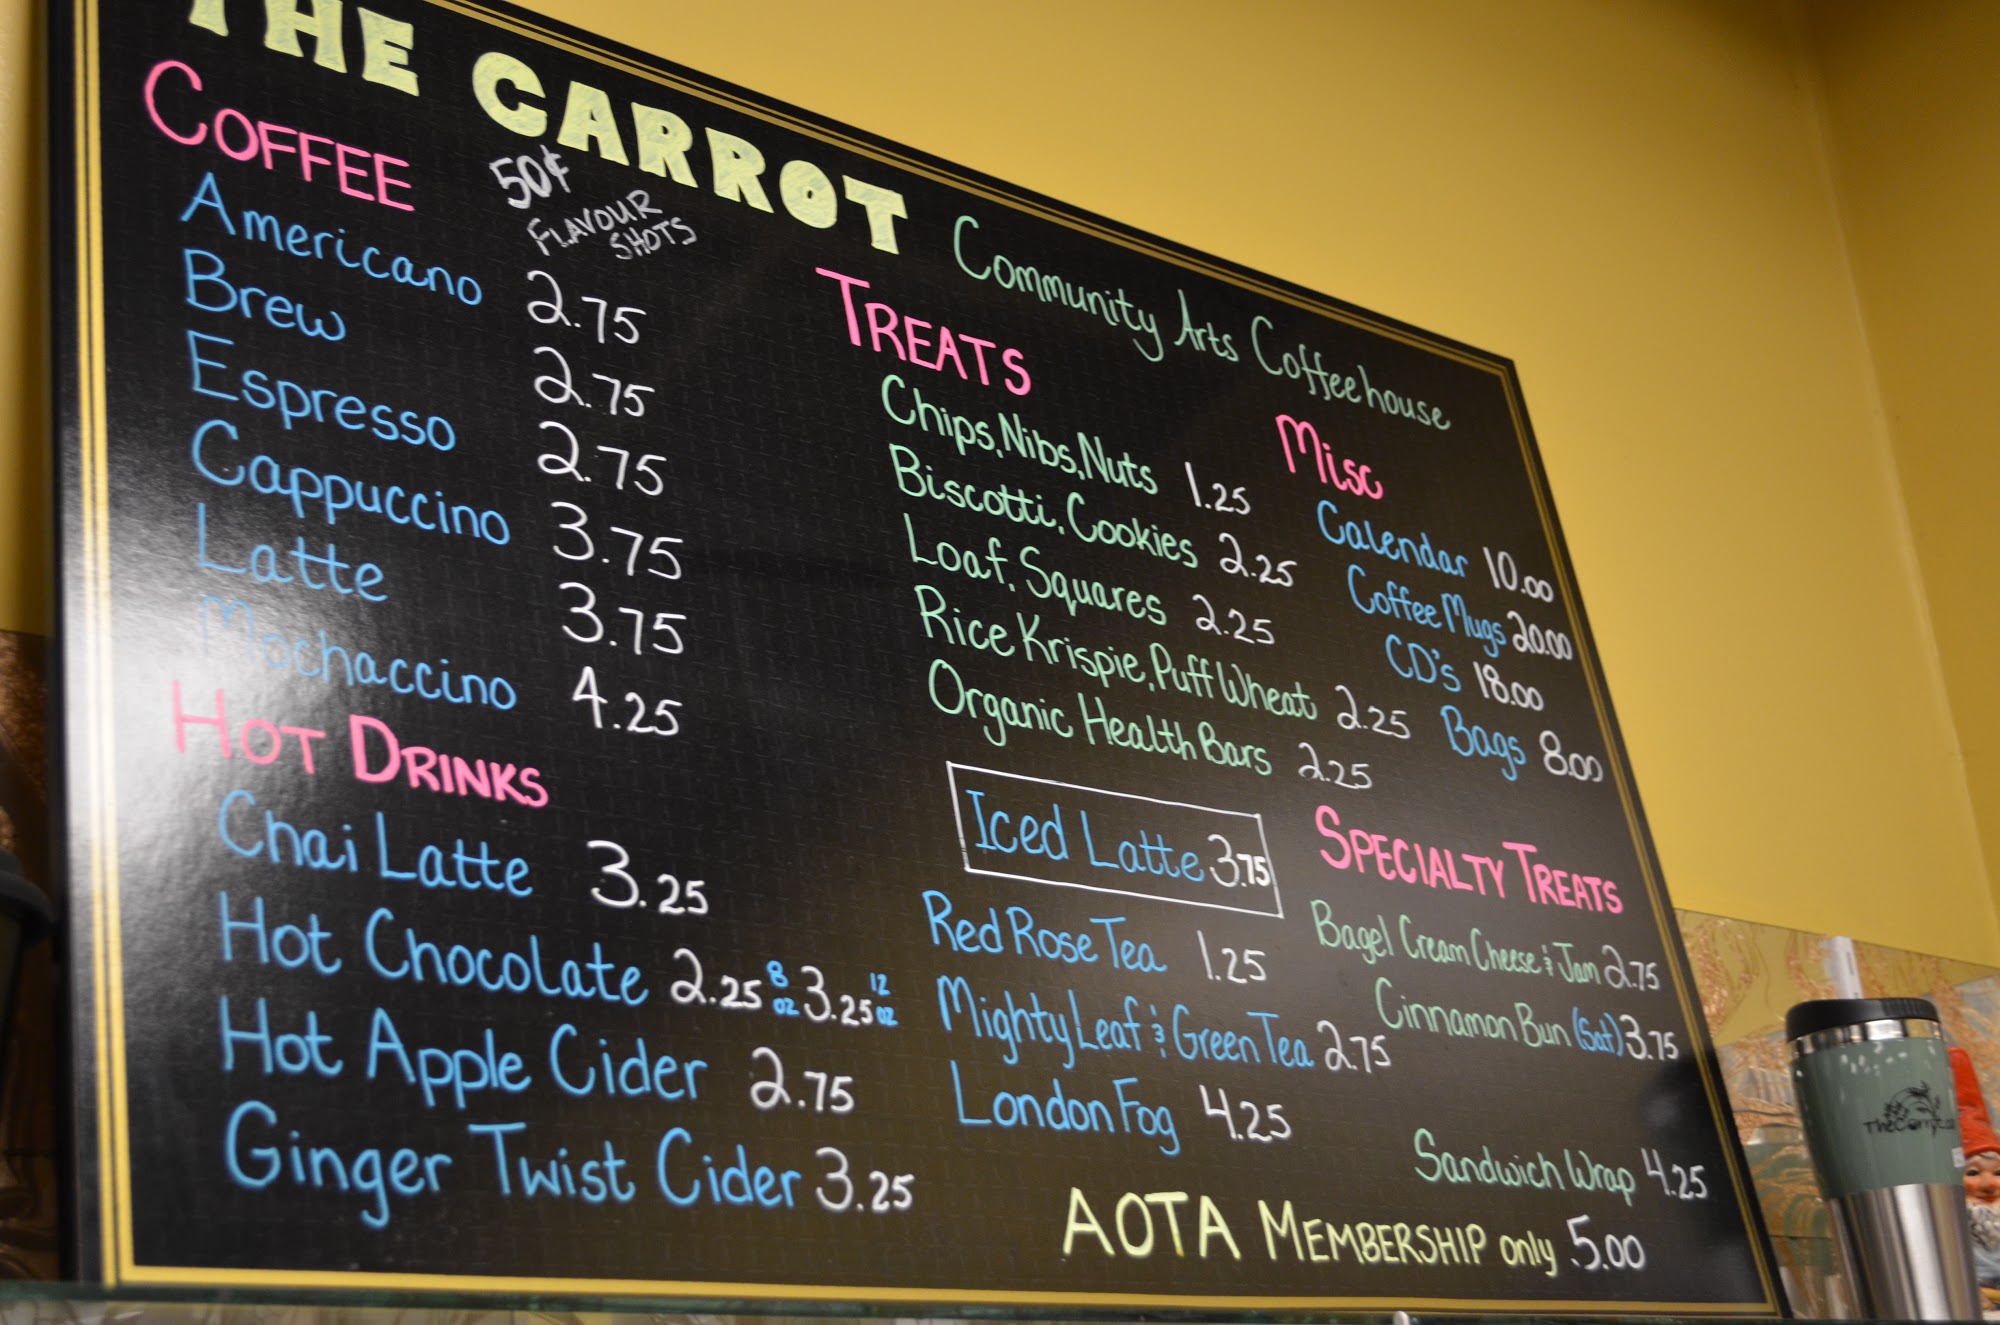 THE CARROT
Community Arts Coffeehouse
COFFEE
50¢
FLAVOUR
SHOTS
Americano 2.75
Brew 2.75
Espresso 2.75
Cappuccino 3.75
Latte 3.75
Mochaccino 4.25
HOT DRINKS
Chai Latte 3.25
Hot Chocolate 2.25 8 oz 3.25 12 oz
Hot Apple Cider 2.75
Ginger Twist Cider 3.25
TREATS
Chips, Nibs, Nuts 1.25
Biscotti, Cookies 2.25
Loaf, Squares 2.25
Rice Krispie, Puff Wheat 2.25
Organic Health Bars 2.25
Iced Latte 3.75
Red Rose Tea 1.25
Mighty Leaf & Green Tea 2.75
London Fog 4.25
Misc
Calendar 10.00
Coffee Mugs 20.00
CD's 18.00
Bags 8.00
SPECIALTY TREATS
Bagel Cream Cheese & Jam 2.75
Cinnamon Bun (Sat) 3.75
Sandwich Wrap 4.25
AOTA MEMBERSHIP only 5.00